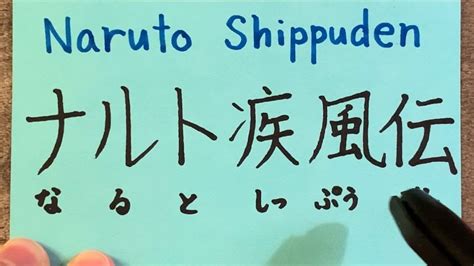 Naruto Shippuden
ナルト疾風伝
なるとしっぷう